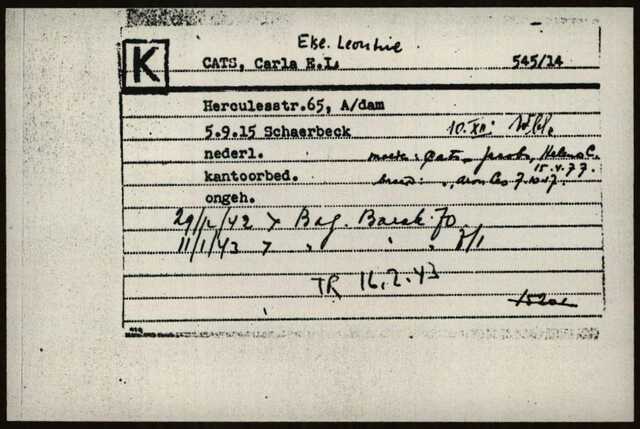 Else. Leontine
K CATS, Carla E.L. 545/24
Herculesstr.65, A/dam
5.9.15 Schaerbeck 10.XII
nederl. moeder: Cats-Jacobs, Helena C.
kantoorbed. 15.4.77.
ongeh.
29/12/42 > Bag. Barak 70
11/1/43 > " " "
TR 16.2.43